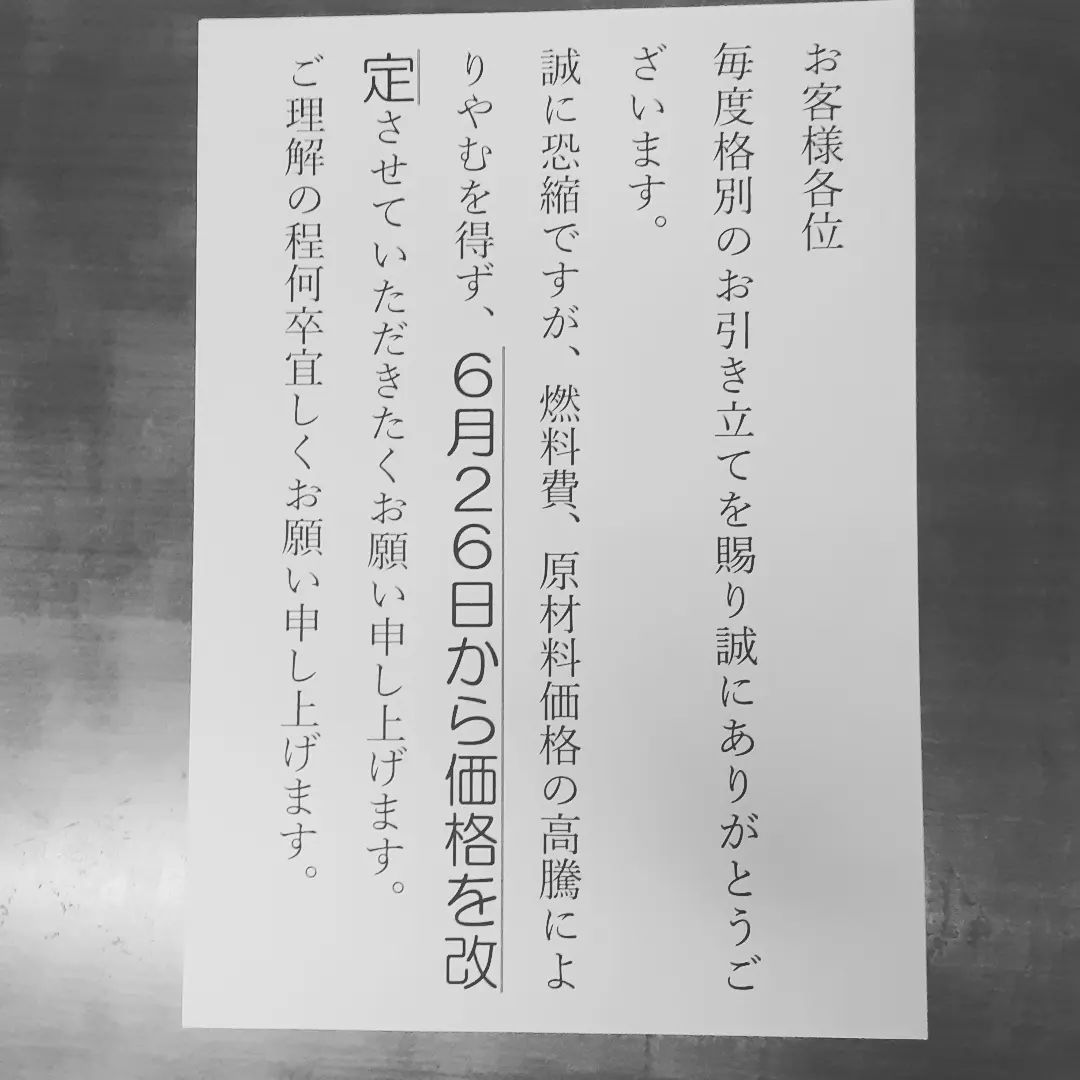 お客様各位
毎度格別のお引き立てを賜り誠にありがとうご
ざいます。
誠に恐縮ですが、燃料費、原材料価格の高騰によ
りやむを得ず、６月２６日から価格を改
定させていただきたくお願い申し上げます。
ご理解の程何卒宜しくお願い申し上げます。